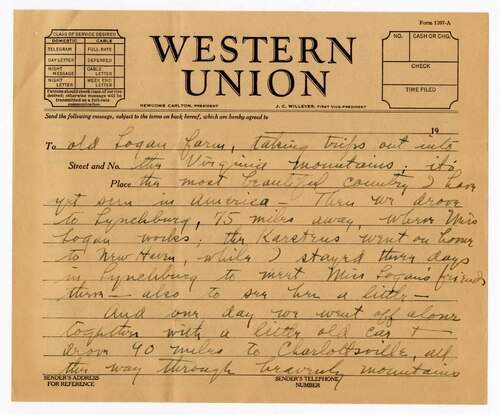 Form 1207-A
CLASS OF SERVICE DESIRED
DOMESTIC CABLE
TELEGRAM FULL RATE
DAY LETTER DEFERRED
NIGHT MESSAGE CABLE LETTER
NIGHT LETTER WEEK END LETTER
Patrons should check class of service desired; otherwise message will be transmitted as a full-rate communication.
WESTERN
UNION
NEWCOMB CARLTON, PRESIDENT J. C. WILLEVER, FIRST VICE-PRESIDENT
NO. CASH OR CHG.
CHECK
TIME FILED
Send the following message, subject to the terms on back hereof, which are hereby agreed to
19
To old Logan farm, taking trips out into
Street and No. the Virginia mountains. it's
Place the most beautiful country I have
yet seen in America – Then we drove
to Lynchburg, 75 miles away, where Miss
Logan works; the Karstens went on home
to New Haven, while I stayed three days
in Lynchburg to meet Miss Logan's friends
there – also to see her a little –
And one day we went off alone
together with a little old car +
drove 90 miles to Charlottsville, all
the way through heavenly mountains
SENDER'S ADDRESS
FOR REFERENCE
SENDER'S TELEPHONE
NUMBER